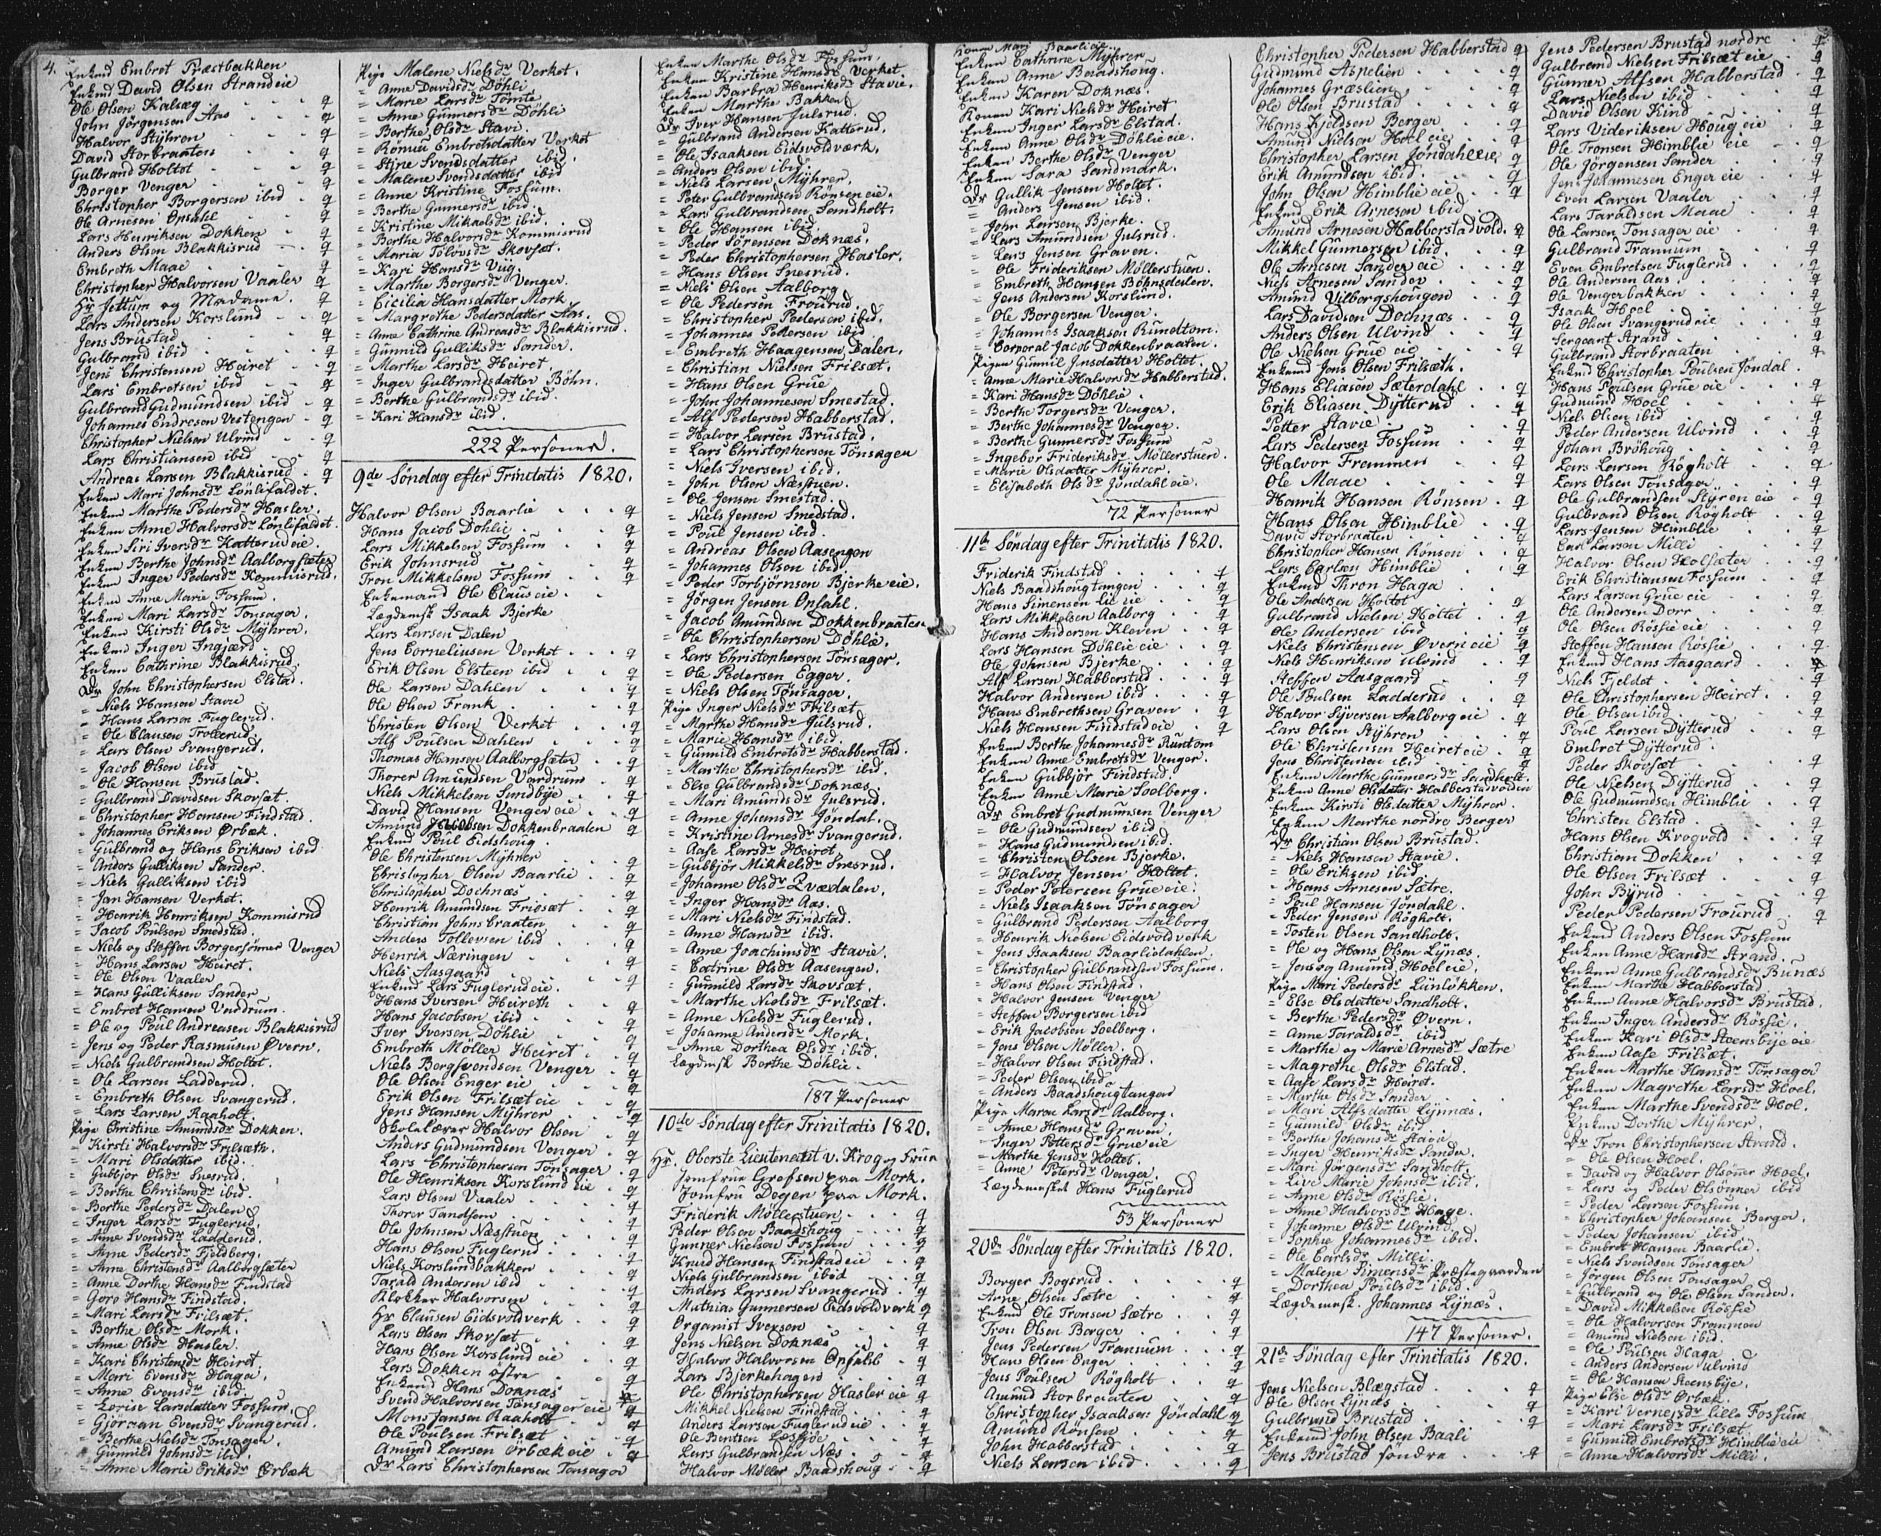 4.
Enkmd Embret Præstbakken
Enkmd David Olsen Strandeie
Ole Olsen Kalsæg
John Jörgensen Aas
Halvor Stÿhren
David Storbraaten
Gulbrand Holtet
Borger Venger
Christopher Borgersen ibid
Ole Arnesen Opsahl
Lars Henriksen Dokken
Anders Olsen Blakkisrud
Embreth Maae
Christopher Halvorsen Vaaler
Hr Jettum og Madame
Lars Andersen Korslund
Jens Brustad
Gulbrand ibid
Jens Christensen Heiret
Lars Embretsen ibid
Gulbrand Gudmundsen ibid
Johannes Endresen Vestengen
Christopher Nielsen Ulvind
Lars Christiansen ibid
Andreas Larsen Blakkisrud
Enken Mari Johnsdr Lönlifaldet.
Enken Marthe Pedersdr Hasler.
Enken Anne Halvorsdr Lönlifaldet
Enken Siri Iversdr Katterudeie.
Enken Berthe Johnsdr Aalborgsæter
Enken Inger Pedersdr Kommisrud.
Enken Anne Marie Fossum.
Enken Mari Larsdr Tonsager.
Enken Kirsti Olsdr Mÿhrer.
Enken Inger Ingjærd
Enken Cathrine Blakkisrud
Dr John Christophersen Elstad.
= Niels Hansen Stavie
= Hans Larsen Fuglerud.
= Ole Clausen Trollerud.
= Lars Olsen Svangerud.
= Jacob Olsen ibid
= Ole Hansen Brustad.
= Gulbrand Davidsen Skovsæt.
= Christopher Hansen Findstad.
= Johannes Eriksen Ørbæk.
= Gulbrand og Hans Eriksen ibid
= Anders Gulliksen Sander.
= Niels Gulliksen ibid
= Jan Hansen Verket.
= Henrik Henriksen Kommisrud
= Jacob Poulsen Smedstad.
= Niels og Steffen Borgersönner Venger
= Hans Larsen Heiret.
= Ole Olsen Vaaler
= Hans Gulliksen Sander
= Embret Hansen Vardrum.
= Ole og Poul Andreasen Blakkisrud
= Jens og Peder Rasmusen Øvern.
= Niels Gulbrandsen Holtet.
= Ole Larsen Ladderud.
= Embreth Olsen Svangerud.
= Lars Larsen Raaholt.
Pige Christine Amundsdr Dokken.
= Kirsti Halvorsdr Frilsæth.
= Mari Olsdatter ibid.
= Gubbjör Olsdr Snesrud.
= Berthe Christensdr ibid.
= Berthe Pedersdr Dalen
= Inger Larsdr Fuglerud.
= Anne Svendsdr Ladderud.
= Anne Pedersdr Fjeldberg.
= Anne Christensdr Aalborgsæter
= Anne Dorthe Hansdr Findstad
= Goro Hansdr Findstad.
= Mari Larsdr Frilsæt.
= Berthe Olsdr Mork.
= Anne Olsdr Hasler.
= Kari Christensdr Heiret.
= Mari Evensdr Haga.
= Anne Evensdr ibid.
= Lovise Larsdatter Fossum.
= Gjöraan Evensdr Svangerud.
= Berthe Nielsdr Tonsager.
= Gunnild Johnsdr ibid.
= Anne Marie Eriksdr Ørbæk
Pige Malene Nielsdr Verket.
= Anne Davidsdr Döhli
= Marie Larsdr Tömte
= Anne Gunnersdr Döhli
= Berthe Olsdr Stavi.
= Römu Embretsdatter Verket
= Stine Svendsdatter ibid.
= Malene Svendsdatter ibid
= Anne Kristine Fossum.
= Berthe Gunnersdr ibid.
= Kristine Mikaelsdr ibid.
= Berthe Halvorsdr Kommisrud
= Maria Tolvsdr Skovsæt.
= Kari Hansdr Viig.
= Marthe Borgersdr Venger.
= Cicilia Hansdatter Mork.
= Margrethe Pedersdatter Aas.
= Anne Cathrine Andreasdr Blakkisrud.
= Gunnild Gulliksdr Sander.
= Marthe Larsdr Heiret.
= Inger Gulbrandsdatter Böhn.
= Berthe Gulbrandsdr ibid.
= Kari Hansdr ibid.
222 Personer.
9de Söndag efter Trinitatis 1820.
Halvor Olsen Baarlie
Hans Jacob Döhlie
Lars Mikkelsen Fossum
Erik Johnsrud
Tron Mikkelsen Fossum
Enkemand Ole Clauseie
Lægdemsk Isaak Bjerke
Lars Larsen Dalen
Jens Corneliusen Verket
Erik Olsen Elsteen ibid
Ole Larsen Dahlen
Ole Olsen Frank
Christen Olsen Verket
Alf Poulsen Dahlen
Thomas Hansen Aalborgsæter
Thorer Amundsen Vardrum
Niels Mikkelsen Sundbÿe
David Hansen Vengereie
Amund Jacobsen Dokkenbraaten
Enkmd Poul Eidshoug
Ole Christensen Mÿhrer
Christopher Olsen Baarlie
Christopher Dochnæs
Henrik Amundsen Frilsæt
Christian Johnsbraaten
Anders Tollevsen ibid
Henrik Næringen
Niels Aasgaard
Enkmd Lars Fuglerudeie.
Hans Iversen Heireth
Hans Jacobsen ibid
Iver Iversen Döhlie
Embreth Möller Heiret
Niels Bergsvendsen Venger
Ole Olsen Engereie
Erik Olsen Frilsæteie
Jens Hansen Mÿhrer
Skolelærer Halvor Olsen
Anders Gudmundsen Venger
Lars Christophersen Tönsager
Ole Henriksen Korslundeie
Lars Olsen Vaaler
Thorer Tandsem
Ole Johnsen Næstuen
Hans Olsen Fuglerud
Niels Korslundbakken
Tarald Andersen ibid
Klokker Halvorsen
Hr Clausen Eidsvoldverk
Lars Olsen Skovsæt
Hans Olsen Korslundeie
Lars Dokken östre
Enkmd Hans Doknæs
Svend Halvorsen Tönsagereie
Mons Jansen Raaholt
Ole Poulsen Frilsæt
Amund Larsen Örbækeie
Dr Lars Christophersen Tonsager
Enken Marthe Olsdr Fossum.
Enken Kristine Hansdr Verket
Enken Barbra Henriksdr Stavie.
Enken Marthe Bakken
Dr Iver Hansen Julsrud.
= Gulbrand Andersen Katterud.
= Ole Isaaksen Eidsvoldværk.
= Anders Olsen ibid.
= Niels Larsen Mÿhrer.
= Peter Gulbrandsen Röneneie.
= Lars Gulbrandsen Sandholt.
= Ole Hansen ibid.
= Peder Sörensen Doknæs.
= Peder Christophersen Hasler.
= Hans Olsen Snesrud.
= Niels Olsen Aalborg
= Ole Pedersen Frourud.
= Christopher Pedersen ibid.
= Johannes Pedersen ibid
= Embreth Haagensen Dalen.
= Christian Nielsen Frilsæt.
= Hans Olsen Grue
= John Johannesen Smestad.
= Alf Pedersen Habberstad.
= Halvor Larsen Brustad.
= Lars Christophersen Tönsagen
= Niels Iversen ibid.
= John Olsen Næstuen.
= Ole Jensen Smestad.
= Niels Jensen Smedstad.
= Poul Jensen ibid.
= Andreas Olsen Aasengen
= Johannes Olsen ibid.
= Peder Torbjörnsen Bjerkeeie.
= Jörgen Jensen Opsahl.
= Jacob Amundsen Dokkenbraaten
= Ole Christophersen Döhlie.
= Lars Christophersen Tönsager.
= Ole Pedersen Egger.
= Niels Olsen Tönsager.
Pige Inger Nielsdr Frilsæt.
= Marthe Hansdr Julsrud.
= Marie Hansdr ibid.
= Gunnild Embretsdr Habberstad.
= Marthe Christophersdr ibid.
= Else Gulbrandsdr Doknæs
= Mari Amundsdr Julsrud.
= Anne Johansdr Jöndal.
= Kristine Arnesdr Svangerud.
= Aase Larsdr Heiret.
= Gubbjör Mikkelsdr Snesrud.
= Johanne Olsdr Kvædalen.
= Inger Hansdr Aas.
= Mari Nielsdr Findstad.
= Anne Hansdr ibid.
= Anne Joachimsdr Stavie.
= Catrine Olsdr Aasengen.
= Gunnild Larsdr Skovsæt.
= Marthe Nielsdr Frilsæt.
= Anne Nielsdr Fuglerud.
= Johanne Andersdr Mork.
= Anne Dorthea Olsdr ibid.
Lægdemsk Berthe Döhlie.
187 Personer
10de Söndag efter Trinitatis 1820.
Hr Oberste Lieutenant v. Krog og Frue
Jomfrue Grefsen paa Mork.
Jomfru Degen paa Mork.
Friderik Möllestuen
Peder Olsen Baadshoug
Gunner Nielsen Fossum
Knud Hansen Findstadeie
Niels Gulbrandsen ibid
Anders Larsen Svangerud
Mathias Gunnersen Eidsvoldverk
Organist Iversen
Jens Nielsen Doknæs
Halvor Halvorsen Opsahl
Lars Bjerkehagen
Ole Christophersen Haslereie
Mikkel Nielsen Findstad
Anders Larsen Fuglerudeie
Ole Bentsen Læssöe
Lars Gulbrandsen Næs
Halvor Möller Baadshoug
Konen Mari Baarlidal
Enken Cathrine Mÿhrer
Enken Anne Baadshoug.
Enken Karen Doknæs.
Konen Kari Nielsdr Heiret
Enken Inger Larsdr Elstad.
Enken Anne Olsdr Döhlieeie.
Enken Berthe Olsdr Venger
Enken Sara Sandmark.
Dr Gullik Jensen Holtet.
= Anders Jensen ibid.
= John Larsen Bjerke.
= Lars Amundsen Julsrud.
= Lars Jensen Graven.
= Ole Frideriksen Möllerstuen.
= Embreth Hansen Böhnsdalen.
= Jens Andersen Korslund.
= Ole Borgersen Venger.
= Johannes Isaaksen Rundtom.
= Corporal Jacob Dokkenbraaten.
Pigen Gunnil Jensdatter Holtet.
= Anne Marie Halvorsdr Habberstad.
= Kari Hansdr Döhlie.
= Berthe Torgersdr Venger.
= Berthe Johannesdr Venger.
= Berthe Gunnersdr Fossum
= Ingebor Frideriksdr Möllerstuen.
= Marie Olsdatter Mÿhrer.
= Elisabeth Olsdr Jöndahleie.
72 Personer
11te Söndag efter Trinitatis 1820.
Friderik Findstad
Niels Baadshougtangen
Hans Simensen Lieeie
Lars Mikkelsen Aalborg
Hans Andersen Kleven
Lars Hansen Döhlieeie
Ole Johnsen Bjerke
Alf Larsen Habberstad
Halvor Andersen ibid
Hans Embrethsen Graven
Niels Hansen Findstadeie
Enken Berthe Johannesdr Runtom
Enken Anne Embretsdr Venger.
Enken Gubbjör Findstad
Enken Anne Marie Soelberg.
Dr Embret Gudmunsen Venger
= Ole Gudmundsen ibid.
= Hans Gudmundsen ibid.
= Christen Olsen Bjerke.
= Halvor Jensen Holtet.
= Peder Petersen Grueeie.
= Niels Isaaksen Tönsager
= Gulbrand Pedersen Aalborg
= Henrik Nielsen Eidsvoldverk
= Jens Isaaksen Baarliedahlen.
= Christopher Gulbrandsen Fossum.
= Hans Olsen Findstad.
= Halvor Jensen Venger
= Steffen Borgersen ibid
= Erik Jacobsen Soelberg.
= Jens Olsen Möller.
= Halvor Olsen Findstad.
= Peder Olsen ibid
= Anders Baadshougtangen
Pige Maren Larsdr Aalborg.
= Anne Hansdr Graven.
= Inger Pettersdr Grueeie
= Marthe Jensdr Holtet.
= Anne Petersdr Venger.
Lægdemsket Hans Fuglerud
53 Personer
20de Söndag efter Trinitatis 1820.
Borger Bogsrud
Arne Olsen Sætre
Enkmd Ole Tronsen Sætre
Tron Olsen Borger
Jens Pedersen Tranum
Hans Olsen Enger
Jens Poulsen Rögholt
Amund Storbraaten
Christopher Isaaksen Jöndahl
Amund Rönsen
John Habberstad
Niels Larsen ibid
Christopher Pedersen Habberstad
Gudmund Aspelien
Johannes Græslien
Ole Olsen Brustad
Hans Kjeldsen Berger
Amund Nielsen Hoeleie
Christopher Larsen Jöndahleie
Erik Amundsen ibid.
John Olsen Himblieeie
Enkmd Erik Arnesen ibid
Amund Arnesen Habberstadvold.
Mikkel Gunnersen ibid.
Ole Arnesen Sandereie
Niels Arnesen Sander
Amund Vilborgshougen
Lars Davidsen Dochnæs
Anders Olsen Ulvind
Ole Nielsen Grueeie
Enkmd Jens Olsen Frilsæth.
Hans Eliasen Sæterdahl
Erik Eliasen Dÿtterud
Petter Stavie
Lars Pedersen Fossum
Halvor Frammen
Ole Maae
Henrik Hansen Rönsen
Hans Olsen Himblie
David Storbraaten
Christopher Hansen Rönsen
Lars Carlsen Himblie
Enkmd Thron Haga
Ole Andersen Holtet
Gulbrand Nielsen Holtet
Ole Andersen ibid
Niels Christensen Øverneie
Niels Henriksen Ulvind
Steffen Aasgaard
Ole Poulsen Ladderud
Halvor Sÿversen Aalborgeie
Lars Olsen Stÿhren
Ole Christensen Heireteie
Jens Christensen ibid
Enken Marthe Gunnersdr Sandholt.
Enken Anne Olsdatter Habberstadvolden
Enken Kirsti Olsdatter Mÿhrer.
Enken Marthe nordre Berger
Dr Christian Olsen Brustad.
= Niels Hansen Stavie.
= Ole Eriksen ibid.
= Hans Arnesen Sætre.
= Poul Hansen Jöndahl.
= Peder Jensen Rögholt.
= Tosten Olsen Sandholt.
= Ole og Hans Olsen Lÿnæs.
= Jens og Amund Hoeleie.
Pige Mari Pedersdr Linlökken.
= Else Olsdatter Sandholt.
= Berthe Pedersdr Øvern.
= Anne Taraldsdr ibid
= Marthe og Marie Arnesdr Sætre
= Magrethe Olsdr Elstad.
= Aase Larsdr Heiret.
= Marthe Olsdr Sander.
= Mari Alfsdatter Lÿnæs.
= Gunnild Olsdr ibid.
= Berthe Johansdr Stavie
= Inger Henriksdr Sander.
= Mari Jörgensdr Sandholt.
= Live Marie Johnsdr ibid.
= Anne Olsdr Rössie.
= Anne Halvorsdr Hage.
= Johanne Olsdr Ulvind.
= Sophie Johannesdr ibid.
= Ole Carlsdr Milli.
= Malene Simensdr Præstegaarden
= Dorthea Poulsdr ibid.
Lægdemsk. Johannes Lÿnæs.
147 Personer.
21de Söndag efter Trinitatis 1820.
Jens Nielsen Blægstad
Ole Olsen Lÿnæs
Gulbrand Brustad
Enkemd John Olsen Baali
Jens Brustad söndre
Jens Pedersen Brustad nordre
Gulbrand Nielsen Frilsæteie
Gunner Alfsen Habberstad
Lars Nielsen ibid
David Olsen Kind
Lars Videriksen Hougeie
Ole Tronsen Himblieeie
Ole Jörgensen Sander
Jens Johannesen Engereie
Even Larsen Vaaler
Lars Taraldsen Maae
Ole Larsen Tonsagereie
Gulbrand Tranum
Even Embretsen Fuglerud
Ole Andersen Aas
Ole Vengerbakken
Isaak Hoel
Ole Olsen Svangerudeie
Sergeant Strand
Gulbrand Storbraaten
Enkmd Christopher Poulsen Jöndal.
Hans Poulsen Grueeie
Gudmund Hoel
Niels Olsen ibid
Peder Andersen Ulvind
Johan Bröhoug
Lars Larsen Rögholt
Lars Olsen Tonsager
Ole Gulbrandsen Stÿreneie
Gulbrand Olsen Rögholt
Lars Jensen Himblie
Carl Larsen Milli
Halvor Olsen Holsæter
Erik Christiansen Fossum
Lars Larsen Grueeie
Ole Andersen Dorr
Ole Olsen Rössieeie
Steffen Hansen Rössie
Enkmd Hans Aasgaard
Niels Fjeldet
Ole Christophersen Heiret
Ole Olsen ibid
Poul Larsen Dÿtterud
Embret Dÿtterud
Peder Skovsæt
Ole Nielsen Dÿtterud
Ole Gudmundsen Himblie
Christen Elstad
Hans Olsen Krogvold
Christian Dokken
Ole Olsen Frilsæt
John Bÿrud
Peder Pedersen Frourud
Enkmd Anders Olsen Fossum
Enken Anne Hansdr Strand.
Enken Anne Gulbrandsdr Bunæs
Enken Marthe Habberstad
Enken Anne Halvorsdr Brustad.
Enken Inger Andersdr Rössie.
Enken Kari Olsdr Steensbÿeeie
Enken Aase Frilsæt.
Enken Marthe Hansdr Tonsager
Enken Magrethe Larsdr Hoel.
Enken Marthe Svendsdr Hol.
Enken Dorthe Mÿhrer.
Dr Tron Christensen Strand.
= Ole Olsen Hoel.
= David og Halvor Olsöner Hoel.
= Lars og Peder Olsönner ibid
= Peder Larsen Fossum.
= Christopher Johansen Berger.
= Peder Johansen ibid
= Embret Hansen Baarlie.
= Niels Svendsen Tönsager
= Jörgen Olsen Tönsager
= Gulbrand og Ole Olsen Sander.
= David Mikkelsen Rössie
= Ole Halvorsen Frammen
= Amund Nielsen ibid.
= Ole Poulsen Haga
= Anders Andersen Ulvind
= Ole Hansen Steensbÿe.
Pige Else Olsdr Örbæk.
= Kari Vernersdr Lille Fossum
= Mari Larsdr Frilsæt.
= Gunnild Embretsdr Himblieeie
= Anne Halvorsdr Milli.